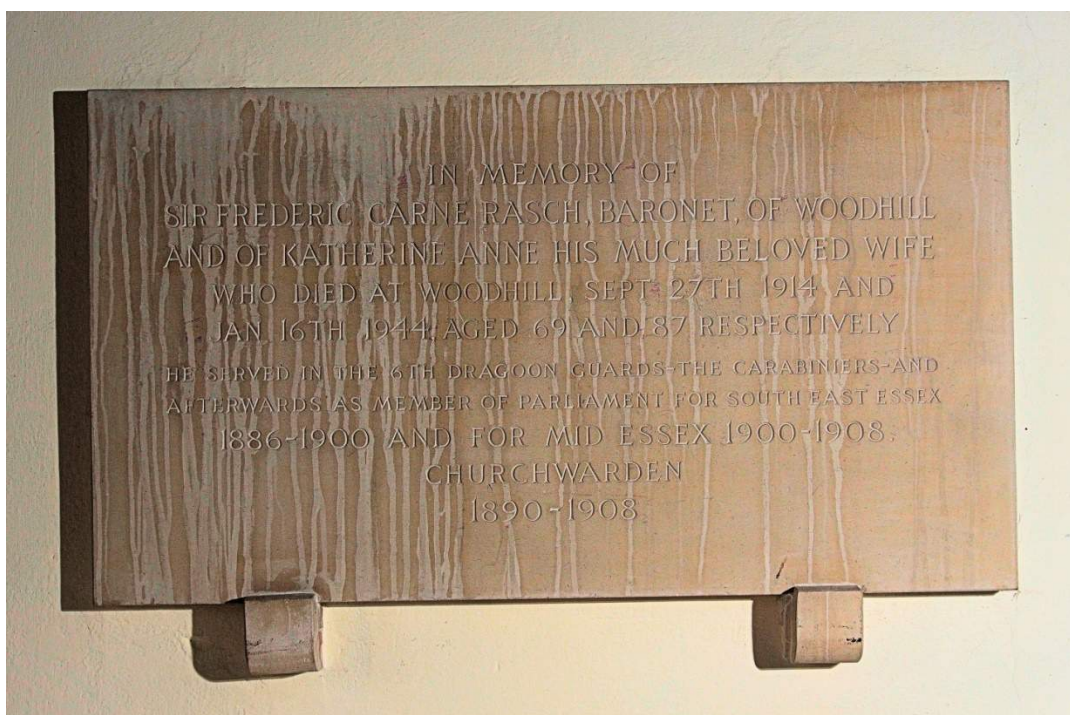 IN MEMORY OF
SIR FREDERIC CARNE RASCH, BARONET, OF WOODHILL
AND OF KATHERINE ANNE HIS MUCH BELOVED WIFE
WHO DIED AT WOODHILL, SEPT. 27TH 1914 AND
JAN. 16TH 1944, AGED 69 AND 87 RESPECTIVELY
HE SERVED IN THE 6TH DRAGOON GUARDS-THE CARABINIERS-AND
AFTERWARDS AS MEMBER OF PARLIAMENT FOR SOUTH EAST ESSEX
1886-1900 AND FOR MID ESSEX 1900-1908.
CHURCHWARDEN
1890-1908